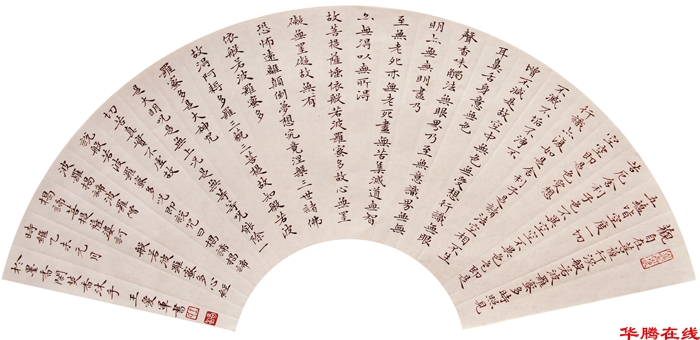 觀自在菩薩行深般若波羅蜜多時照見
五蘊皆空度一切
苦厄舍利子色不異空空不異色色即是
空空即是色受想
行識亦復如是舍利子是諸法空相不生
不滅不垢不淨不
增不減是故空中無色無受想行識無眼
耳鼻舌身意無色
聲香味觸法無眼界乃至無意識界無無
明亦無無明盡乃
至無老死亦無老死盡無苦集滅道無智
亦無得以無所得
故菩提薩埵依般若波羅蜜多故心無罣
礙無罣礙故無有
恐怖遠離顛倒夢想究竟涅槃三世諸佛
依般若波羅蜜多
故得阿耨多羅三藐三菩提故知般若波
羅蜜多是大神咒
是大明咒是無上咒是無等等咒能除一
切苦真實不虛故
說般若波羅蜜多咒即說咒曰揭諦揭諦
波羅揭諦波羅僧
揭諦菩提薩摩訶般若波羅蜜多心經
時維乙未元月
於墨香閣焚香沐手王愛軍書
华腾在线